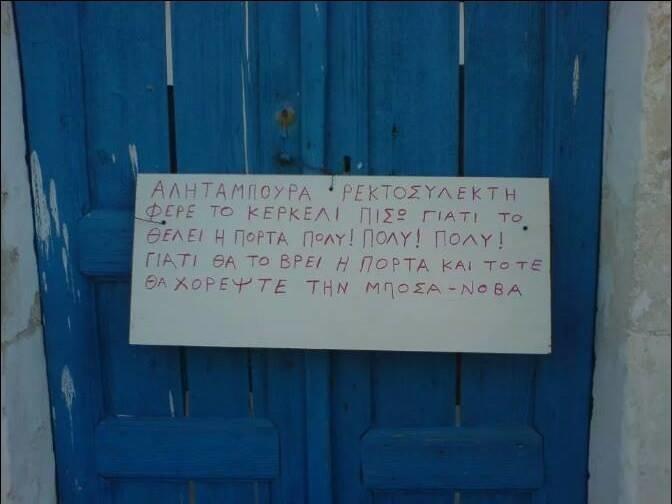 ΑΛΗΤΑΜΠΟΥΡΑ ΡΕΚΤΟΣΥΛΕΚΤΗ
ΦΕΡΕ ΤΟ ΚΕΡΚΕΛΙ ΠΙΣΩ ΓΙΑΤΙ ΤΟ
ΘΕΛΕΙ Η ΠΟΡΤΑ ΠΟΛΥ! ΠΟΛΥ! ΠΟΛΥ!
ΓΙΑΤΙ ΘΑ ΤΟ ΒΡΕΙ Η ΠΟΡΤΑ ΚΑΙ ΤΟΤΕ
ΘΑ ΧΟΡΕΨΤΕ ΤΗΝ ΜΠΟΣΑ-ΝΟΒΑ